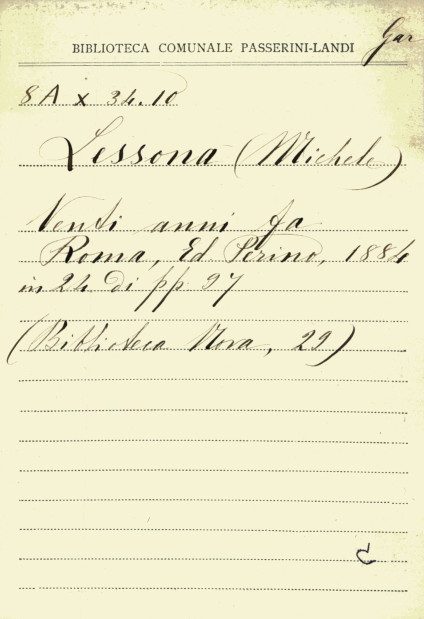 Gar
BIBLIOTECA COMUNALE PASSERINI-LANDI
8A x 34.10
Lessona (Michele)
Venti anni fa
Roma, Ed Perino, 1884
in 24 di pp 97
(Biblioteca Nova, 29)
C